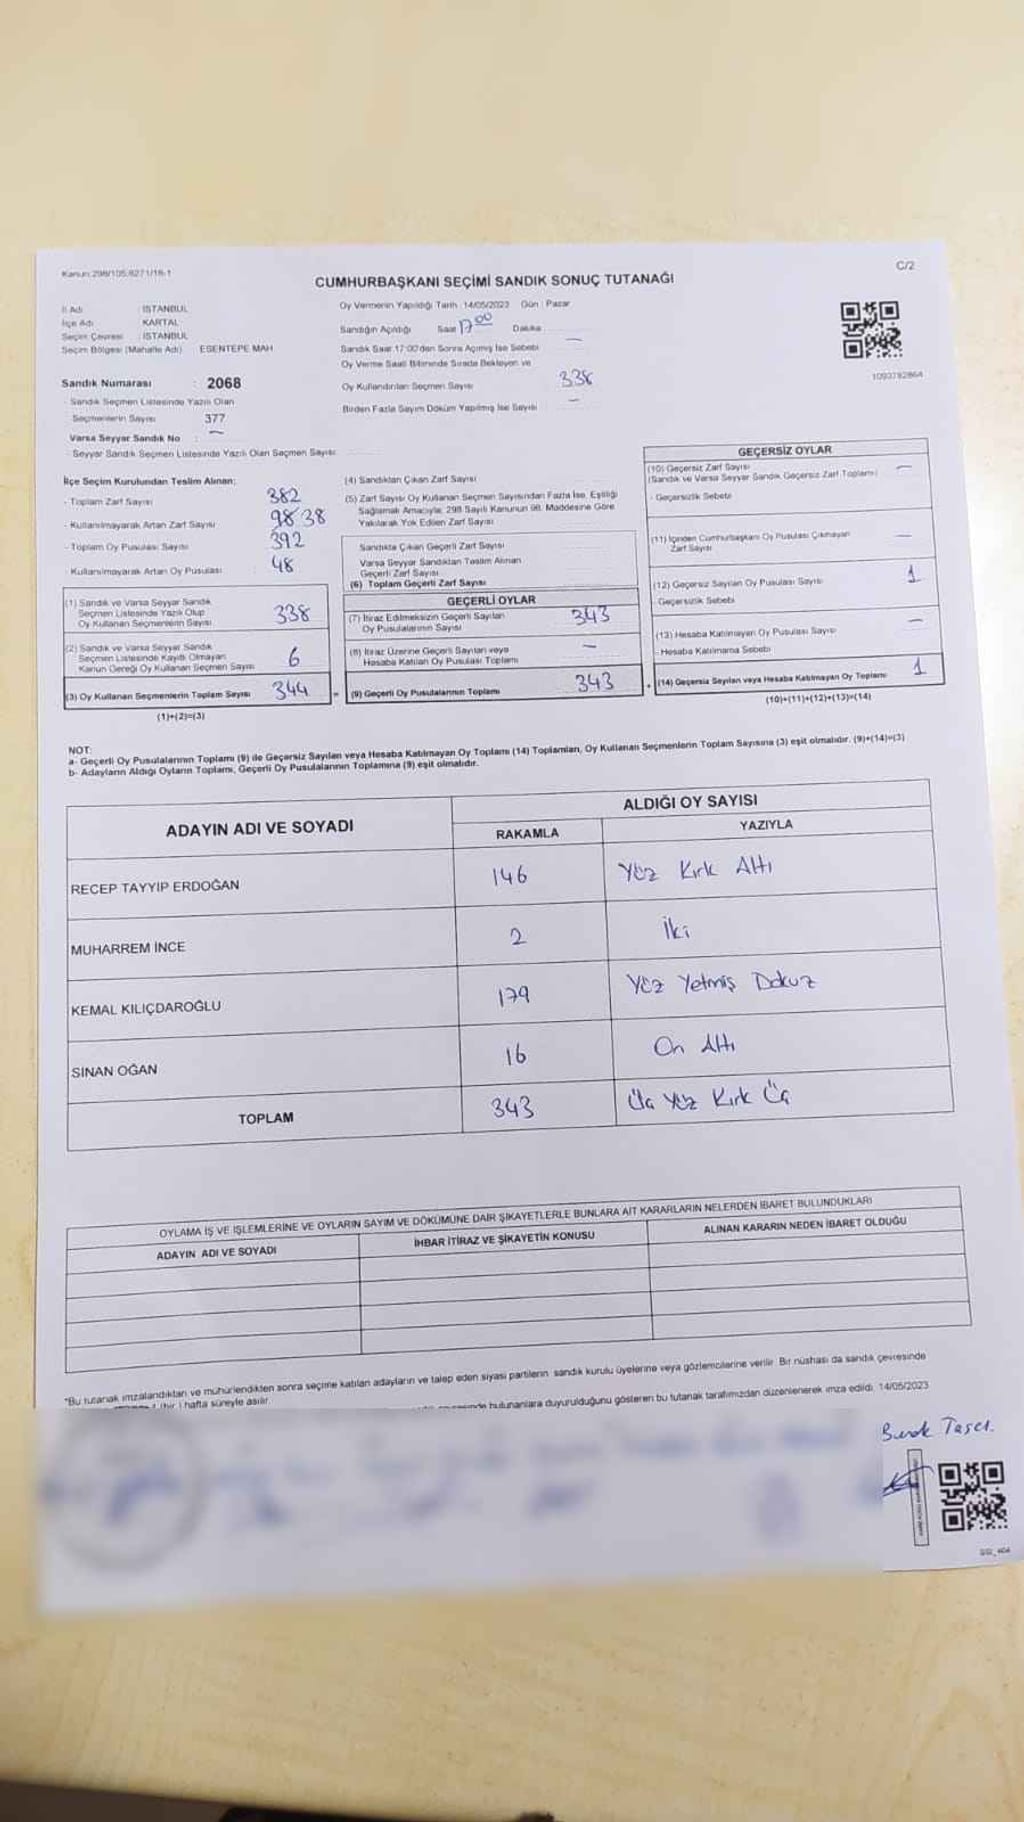 Kanun:298/105;6271/18-1
C/2
CUMHURBAŞKANI SEÇİMİ SANDIK SONUÇ TUTANAĞI
İl Adı : İSTANBUL
İlçe Adı : KARTAL
Seçim Çevresi : İSTANBUL
Seçim Bölgesi (Mahalle Adı) ESENTEPE MAH
Sandık Numarası : 2068
- Sandık Seçmen Listesinde Yazılı Olan
Seçmenlerin Sayısı 377
Varsa Seyyar Sandık No : –
- Seyyar Sandık Seçmen Listesinde Yazılı Olan Seçmen Sayısı
Oy Vermenin Yapıldığı Tarih : 14/05/2023 Gün : Pazar
Sandığın Açıldığı Saat 17 00 Dakika
Sandık Saat 17:00'den Sonra Açılmış İse Sebebi –
Oy Verme Saati Bitiminde Sırada Bekleyen ve
Oy Kullandırılan Seçmen Sayısı 338
Birden Fazla Sayım Döküm Yapılmış İse Sayısı –
1093792864
İlçe Seçim Kurulundan Teslim Alınan;
- Toplam Zarf Sayısı 382
- Kullanılmayarak Artan Zarf Sayısı 98 38
- Toplam Oy Pusulası Sayısı 392
- Kullanılmayarak Artan Oy Pusulası 48
(1) Sandık ve Varsa Seyyar Sandık
Seçmen Listesinde Yazılı Olup
Oy Kullanan Seçmenlerin Sayısı 338
(2) Sandık ve Varsa Seyyar Sandık
Seçmen Listesinde Kayıtlı Olmayan
Kanun Gereği Oy Kullanan Seçmen Sayısı 6
(3) Oy Kullanan Seçmenlerin Toplam Sayısı 344 =
(1)+(2)=(3)
(4) Sandıktan Çıkan Zarf Sayısı
(5) Zarf Sayısı Oy Kullanan Seçmen Sayısından Fazla İse, Eşitliği
Sağlamak Amacıyla; 298 Sayılı Kanunun 98. Maddesine Göre
Yakılarak Yok Edilen Zarf Sayısı
Sandıkta Çıkan Geçerli Zarf Sayısı
Varsa Seyyar Sandıktan Teslim Alınan
Geçerli Zarf Sayısı
(6) Toplam Geçerli Zarf Sayısı
GEÇERLİ OYLAR
(7) İtiraz Edilmeksizin Geçerli Sayılan
Oy Pusulalarının Sayısı 343
(8) İtiraz Üzerine Geçerli Sayılan veya
Hesaba Katılan Oy Pusulası Toplamı –
(9) Geçerli Oy Pusulalarının Toplamı 343 +
GEÇERSİZ OYLAR
(10) Geçersiz Zarf Sayısı
(Sandık ve Varsa Seyyar Sandık Geçersiz Zarf Toplamı) –
- Geçersizlik Sebebi
(11) İçinden Cumhurbaşkanı Oy Pusulası Çıkmayan
Zarf Sayısı –
(12) Geçersiz Sayılan Oy Pusulası Sayısı 1
- Geçersizlik Sebebi
(13) Hesaba Katılmayan Oy Pusulası Sayısı –
- Hesaba Katılmama Sebebi
(14) Geçersiz Sayılan veya Hesaba Katılmayan Oy Toplamı 1
(10)+(11)+(12)+(13)=(14)
NOT:
a- Geçerli Oy Pusulalarının Toplamı (9) ile Geçersiz Sayılan veya Hesaba Katılmayan Oy Toplamı (14) Toplamları, Oy Kullanan Seçmenlerin Toplam Sayısına (3) eşit olmalıdır. (9)+(14)=(3)
b- Adayların Aldığı Oyların Toplamı, Geçerli Oy Pusulalarının Toplamına (9) eşit olmalıdır.
ADAYIN ADI VE SOYADI
ALDIĞI OY SAYISI
RAKAMLA YAZIYLA
RECEP TAYYİP ERDOĞAN 146 Yüz Kırk Altı
MUHARREM İNCE 2 İki
KEMAL KILIÇDAROĞLU 179 Yüz Yetmiş Dokuz
SİNAN OĞAN 16 On Altı
TOPLAM 343 Üç Yüz Kırk Üç
OYLAMA İŞ VE İŞLEMLERİNE VE OYLARIN SAYIM VE DÖKÜMÜNE DAİR ŞİKAYETLERLE BUNLARA AİT KARARLARIN NELERDEN İBARET BULUNDUKLARI
ADAYIN ADI VE SOYADI İHBAR İTİRAZ VE ŞİKAYETİN KONUSU ALINAN KARARIN NEDEN İBARET OLDUĞU
*Bu tutanak imzalandıktan ve mühürlendikten sonra seçime katılan adayların ve talep eden siyasi partilerin sandık kurulu üyelerine veya gözlemcilerine verilir. Bir nüshası da sandık çevresinde
hafta süreyle asılır.
bulunanlara duyurulduğunu gösteren bu tutanak tarafımızdan düzenlenerek imza edildi. 14/05/2023
Burak Taşcı.